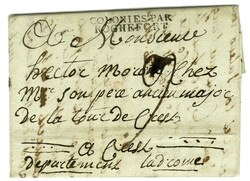 COLONIES PAR
ROCHEFORT
A Monsieur
hector morel Chez
Mr son pere ancien major
de la tour de Crest
a Crest
departement ladrome